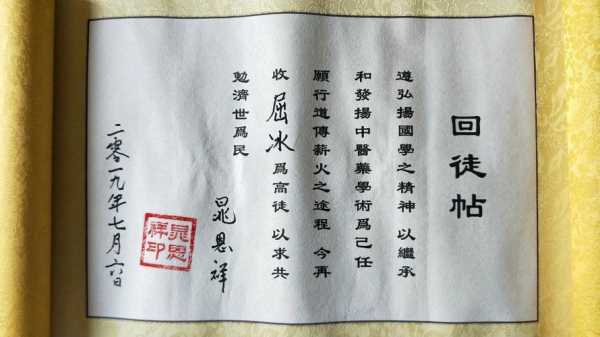 回徒帖
遵弘揚國學之精神 以繼承
和發揚中醫藥學術爲己任
願行道傳薪火之途程 今再
收屈冰爲高徒 以求共
勉濟世爲民
晁恩祥
二零一九年七月六日
晁恩祥印